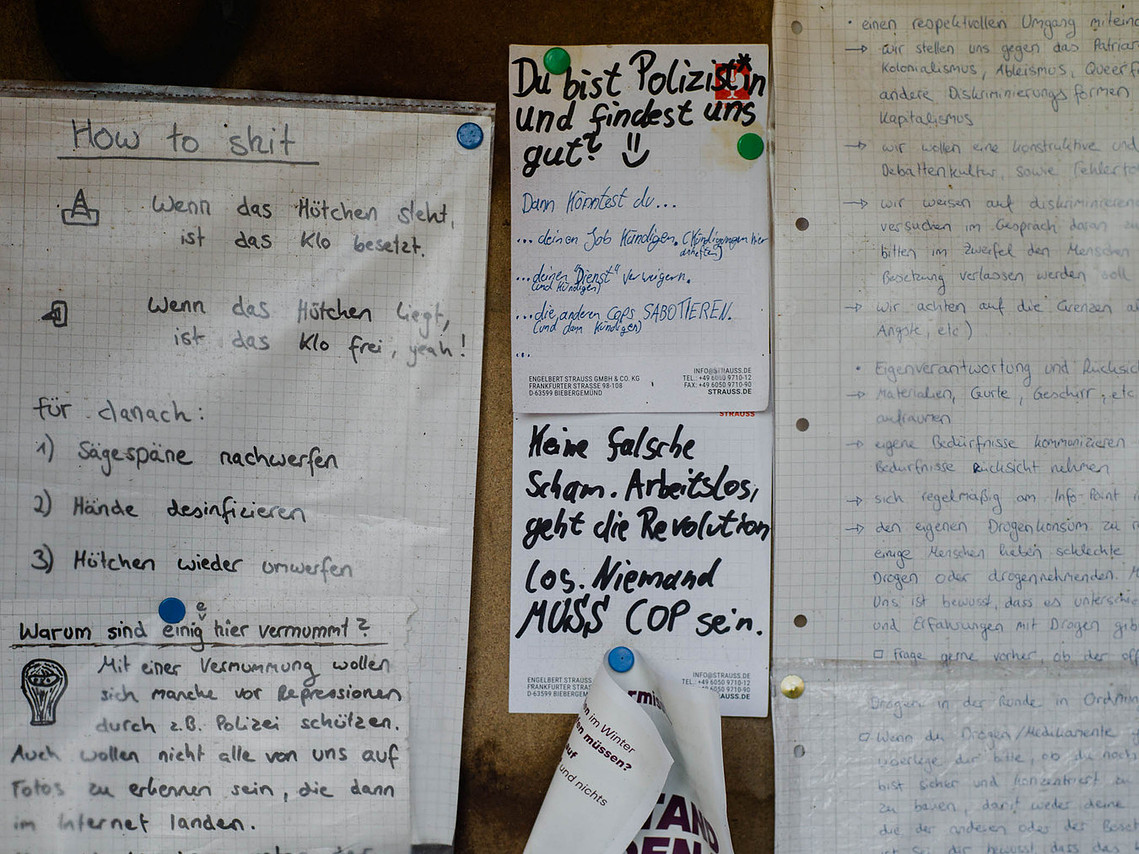 How to shit
Wenn das Hütchen steht,
ist das Klo besetzt.
Wenn das Hütchen liegt,
ist das Klo frei, yeah!
für danach:
1) Sägespäne nachwerfen
2) Hände desinfizieren
3) Hütchen wieder umwerfen
Warum sind einige hier vermummt?
Mit einer Vermummung wollen
sich manche vor Repressionen
durch z.B. Polizei schützen.
Auch wollen nicht alle von uns auf
Fotos zu erkennen sein, die dann
im Internet landen.
Du bist Polizist*in
und findest uns
gut? :)
Dann könntest du...
...deinen Job kündigen. (Kündigungen hier
anheften)
...deinen "Dienst" verweigern.
(und kündigen)
...die anderen Cops SABOTIEREN.
(und dann kündigen)
...
ENGELBERT STRAUSS GMBH & CO. KG
FRANKFURTER STRASSE 98-108
D-63599 BIEBERGEMÜND
INFO@STRAUSS.DE
TEL.: +49 6050 9710-12
FAX: +49 6050 9710-90
STRAUSS.DE
STRAUSS
Keine falsche
Scham. Arbeitslos,
geht die Revolution
los. Niemand
MUSS COP sein.
ENGELBERT STRAUSS
FRANKFURTER STRAS
D-63599 BIEBERGEM
INFO@STRAUSS.DE
+49 6050 9710-12
9710-90
STRAUSS.DE
im Winter
müssen?
auf
und nichts
TAND
DEN
• einen respektvollen Umgang miteina
→ wir stellen uns gegen das Patriar
Kolonialismus, Ableismus, Queerf
andere Diskriminierungsformen
Kapitalismus
→ wir wollen eine konstruktive und
Debattenkultur, sowie Fehlerto
→ wir weisen auf diskriminieren
versuchen im Gespräch daran zu
bitten im Zweifel den Menschen
Besetzung verlassen werden soll
→ wir achten auf die Grenzen a
Ängste, etc)
• Eigenverantwortung und Rücksich
→ Materialien, Gurte, Geschirr, etc
aufräumen
→ eigene Bedürfnisse kommunizieren
Bedürfnisse Rücksicht nehmen
→ sich regelmäßig am Info-Point i
→ den eigenen Drogenkonsum zu r
einige Menschen haben schlechte
Drogen oder drogennehmenden. M
Uns ist bewusst, dass es unterschie
und Erfahrungen mit Drogen gib
□ Frage gerne vorher, ob der off
Drogen in der Runde in Ordnun
□ Wenn du Drogen/Medikamente
überlege dir bitte, ob du noch
bist sicher und konzentriert zu
zu bauen, damit weder deine
die der anderen oder der Bese